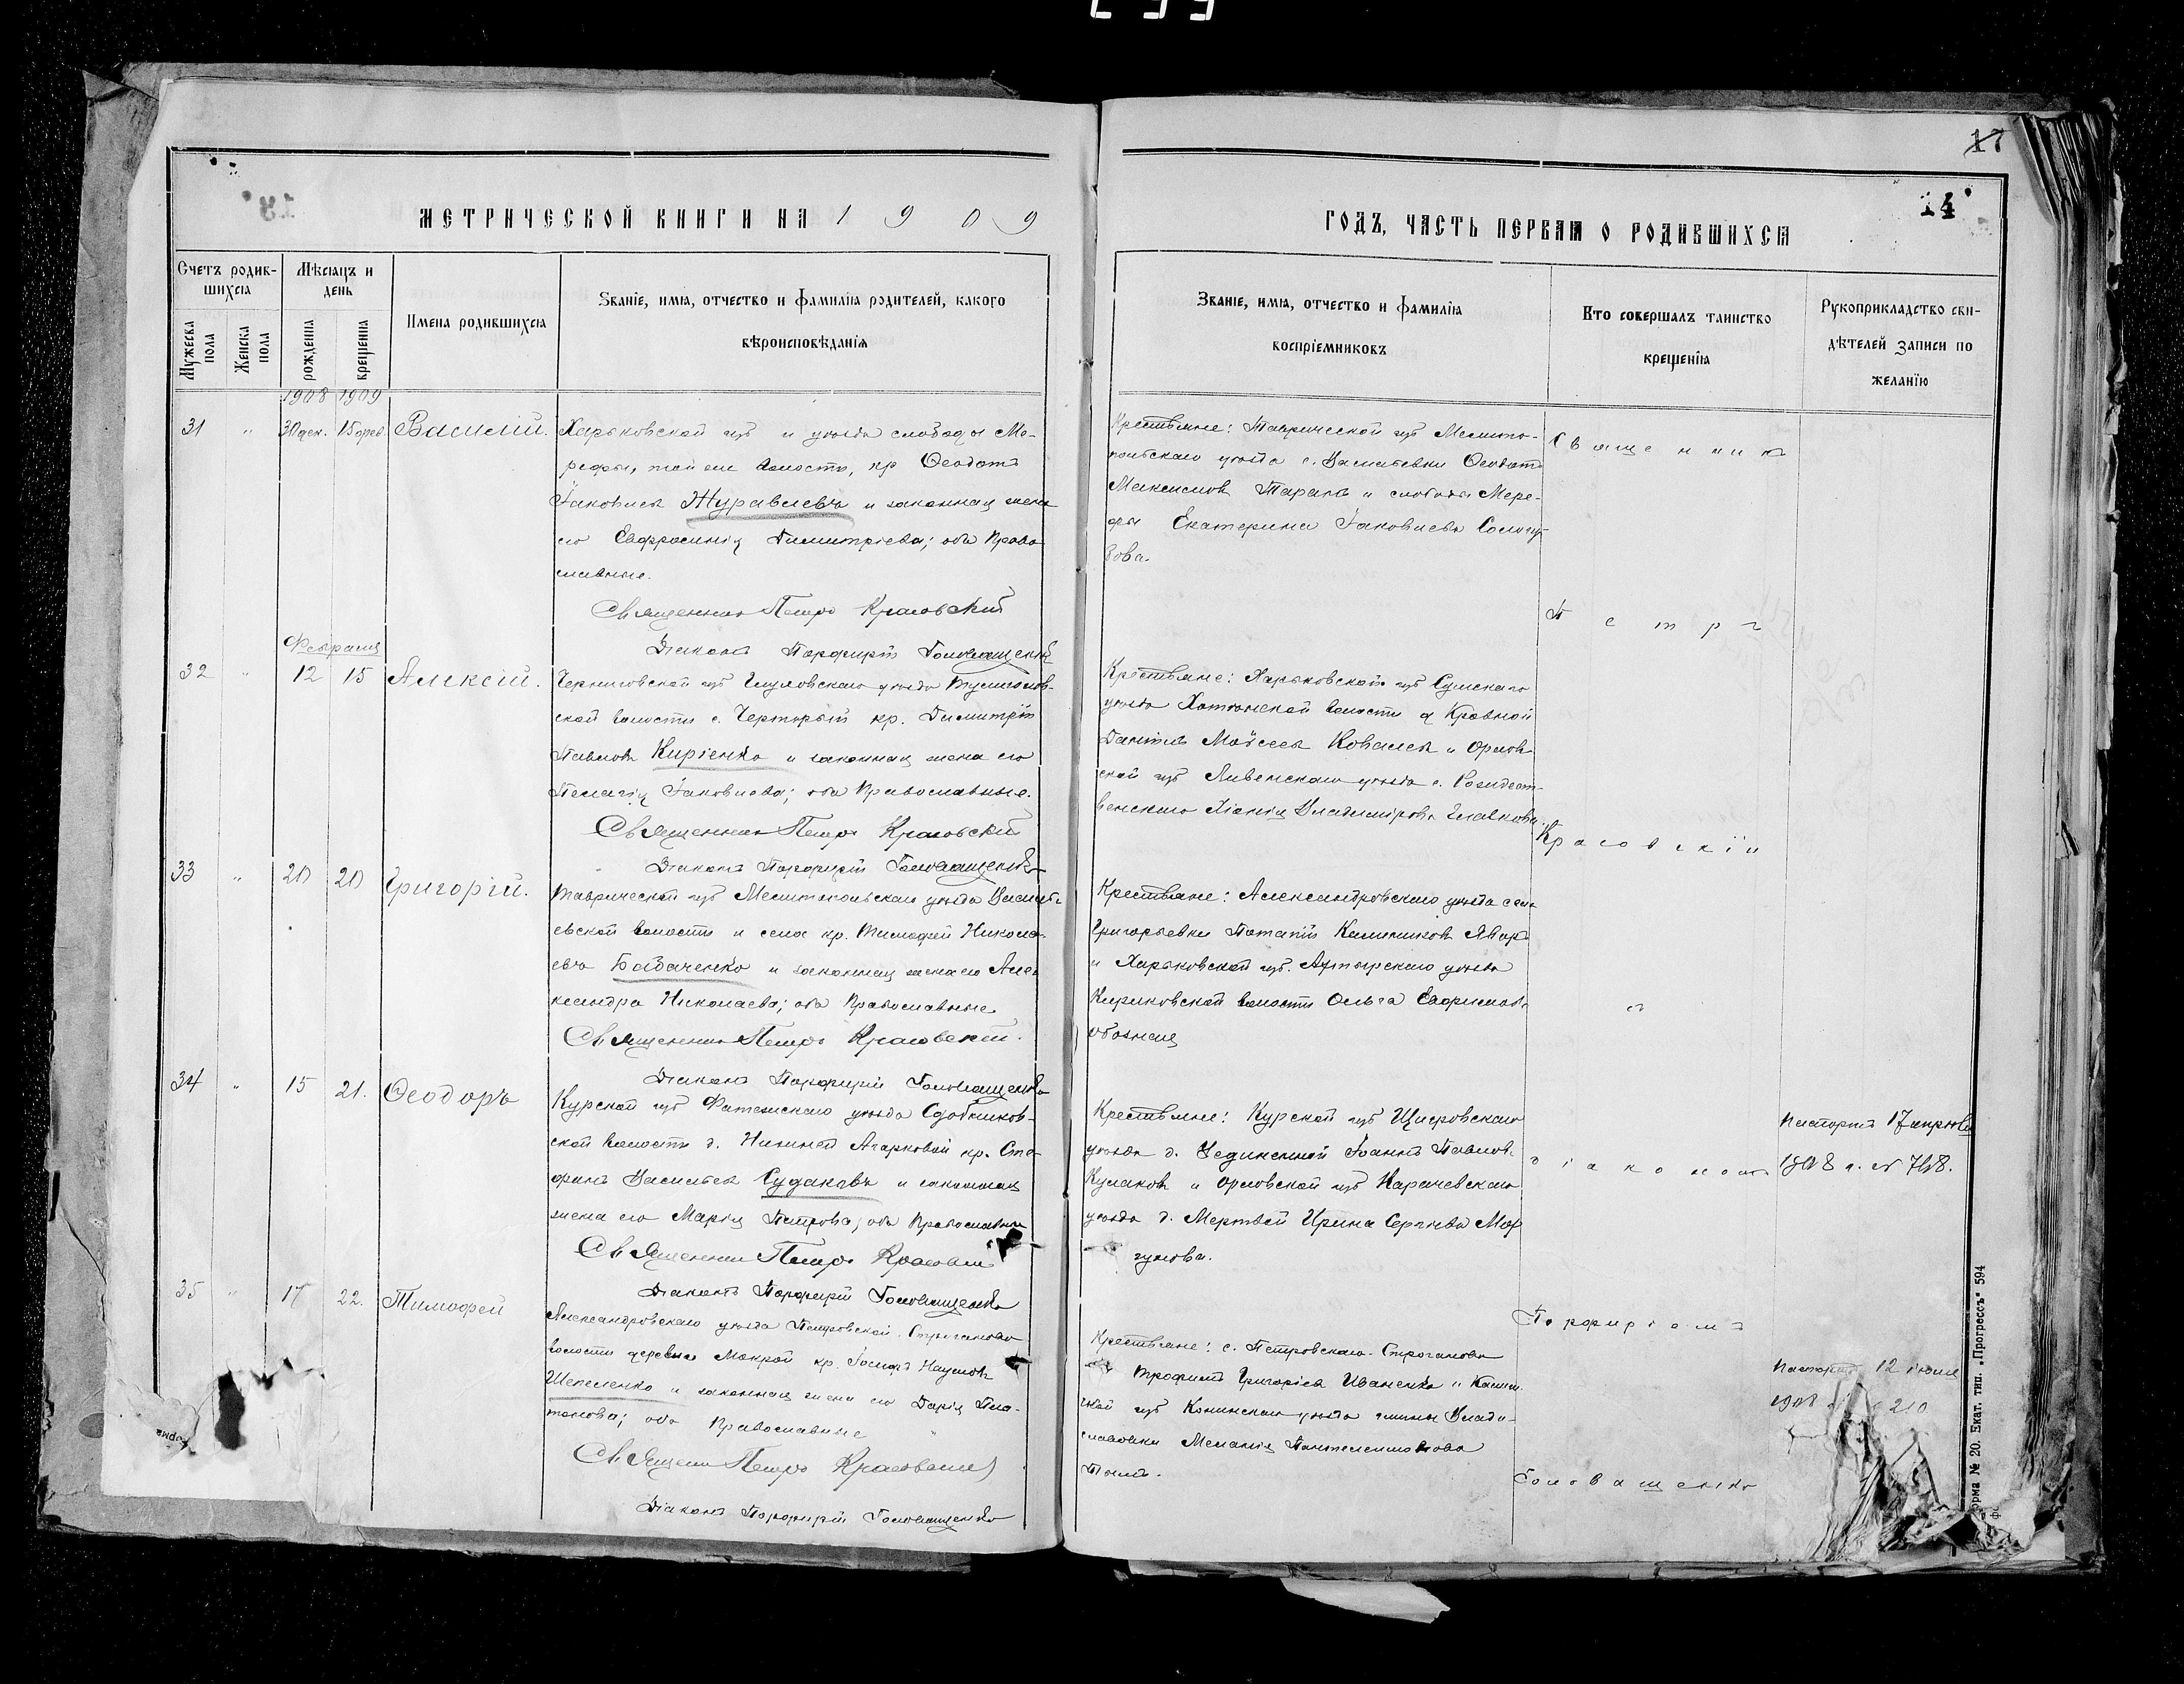 17
14
МЕТРИЧЕСКОЙ КНИГИ НА 1909
ГОДЪ, ЧАСТЬ ПЕРВАЯ О РОДИВШИХСЯ
Счетъ родив-
шихся
Мѣсяцъ и
день
Мужеска
пола
Женска
пола
рожденія
крещенія
Имена родившихся
Званіе, имя, отчество и фамилія родителей, какого
вѣроисповѣданія
Званіе, имя, отчество и фамилія
воспріемниковъ
Кто совершалъ таинство
крещенія
Рукоприкладство сви-
дѣтелей записи по
желанію
1908 1909
31 " 30 дек. 15 фев. Василій.
Харьковской губ и уѣзда слободы Ме-
рефы, той же волости, кр Ѳеодотъ
Іаковлевъ Журавлевъ и законная жена
его Евфросинія Димитріева; оба Право-
славные.
Священникъ Петръ Красовскій
Діаконъ Порфирій Головащенко
Крестьяне: Таврической губ Мелито-
польскаго уѣзда с. Васильевки Ѳеодотъ
Максимовъ Таранъ и слободы Мере-
фы Екатерина Іаковлева Сологу-
бова.
Священникъ
Петръ
Красовскій
съ
діакономъ
Порфиріемъ
Головащенко
Февраля
32 " 12 15 Алексій.
Черниговской губ Глуховскаго уѣзда Тулиголов-
ской волости с. Черторый кр. Димитрій
Павловъ Киріенко и законная жена его
Пелагія Іаковлева; оба Православные.
Священникъ Петръ Красовскій
Діаконъ Порфирій Головащенко
Крестьяне: Харьковской губ Сумскаго
уѣзда Хотѣнской волости Кровной
Даніилъ Моѵсеевъ Ковалевъ и Орлов-
ской губ Ливенскаго уѣзда с. Рождест-
венскаго Владимірова
33 " 20 20 Григорій.
Таврической губ Мелитопольскаго уѣзда Василь-
евской волости и села кр. Тимофей Никола-
евъ Бабаченко и законная жена его Алек-
сандра Николаева; оба Православные
Священникъ Петръ Красовскій.
Діаконъ Порфирій Головащенко
Крестьяне: Александровскаго уѣзда села
Григорьевки Потапій Калинниковъ Яворъ
и Харьковской губ. Ахтырскаго уѣзда
Кириковской волости Ольга Евфимова
Обозная
34 " 15 21. Ѳеодоръ
Курской губ Фатежскаго уѣзда Сдобников-
ской волости д. Нижней Агарковой кр. Сте-
фанъ Васильевъ Судаковъ и законная
жена его Марія Петрова; оба Православные
Священникъ Петръ Красовскій
Діаконъ Порфирій Головащенко
Крестьяне: Курской губ Щигровскаго
уѣзда д. Уединенной Іоаннъ Павловъ
Кулаковъ и Орловской губ Карачевскаго
уѣзда д. Мертвей Ирина Сергіева Мор-
гунова.
Паспортъ 17 апрѣля
1908 г. № 708.
35 " 17 22. Тимофей
Александровскаго уѣзда Петровской-Строганово
волости деревни Мокрой кр. Іосифъ Наумовъ
Шепеленко и законная жена его Дарія Пла-
тонова; оба Православные
Священ Петръ Красовскій
Діаконъ Порфирій Головащенко
Крестьяне: с. Петровскаго-Строганова
Трофимъ Григоріевъ Иваненко и Калиш-
ской губ Конинскаго уѣзда гмины Влади-
славовки Меланія Пантелеимонова
Паспортъ 12 іюня
1908 210
форма № 20. Екат. тип. „Прогрессъ“ 594